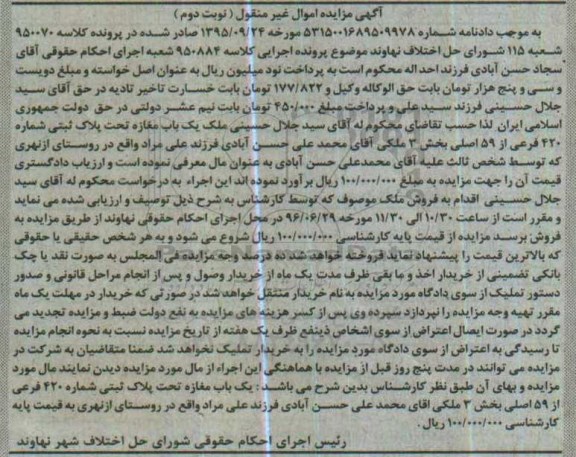 آگهی مزایده اموال غیر منقول ( نوبت دوم )
به موجب دادنامه شماره ۵۳۱۵۰۰۱۶۸۹۵۰۹۹۷۸ مورخه ۱۳۹۵/۰۹/۲۴ صادر شده در پرونده کلاسه ۹۵۰۰۷۰
شعبه ۱۱۵ شورای حل اختلاف نهاوند موضوع پرونده اجرایی کلاسه ۹۵۰۸۸۴ شعبه اجرای احکام حقوقی آقای
سجاد حسن آبادی فرزند احد اله محکوم است به پرداخت نود میلیون ریال به عنوان اصل خواسته و مبلغ دویست
و سی و پنج هزار تومان بابت حق الوکاله وکیل و ۱۷۷/۸۲۲ تومان بابت خسارت تاخیر تادیه در حق آقای سید
جلال حسینی فرزند سید علی و پرداخت مبلغ ۴۵۰/۰۰۰ تومان بابت نیم عشر دولتی در حق دولت جمهوری
اسلامی ایران لذا حسب تقاضای محکوم له آقای سید جلال حسینی ملک یک باب مغازه تحت پلاک ثبتی شماره
۴۲۰ فرعی از ۵۹ اصلی بخش ۳ ملکی آقای محمد علی حسن آبادی فرزند علی مراد واقع در روستای ازنهری
که توسط شخص ثالث علیه آقای محمدعلی حسن آبادی به عنوان مال معرفی نموده است و ارزیاب دادگستری
قیمت آن را جهت مزایده به مبلغ ۱۰۰/۰۰۰/۰۰۰ ریال بر آورد نموده اند این اجراء به درخواست محکوم له آقای سید
جلال حسینی اقدام به فروش ملک موصوف که توسط کارشناس به شرح ذیل توصیف و ارزیابی شده می نماید
و مقرر است از ساعت ۱۰/۳۰ الی ۱۱/۳۰ مورخه ۹۶/۰۶/۲۹ در محل اجرای احکام حقوقی نهاوند از طریق مزایده به
فروش برسد مزایده از قیمت پایه کارشناسی ۱۰۰/۰۰۰/۰۰۰ ریال شروع می شود و به هر شخص حقیقی یا حقوقی
که بالاترین قیمت را پیشنهاد نماید فروخته خواهد شد ده درصد وجه مزایده فی المجلس به صورت نقد یا چک
بانکی تضمینی از خریدار اخذ و ما بقی ظرف مدت یک ماه از خریدار وصول و پس از انجام مراحل قانونی و صدور
دستور تملیک از سوی دادگاه مورد مزایده به نام خریدار منتقل خواهد شد در صورتی که خریدار در مهلت یک ماه
مقرر تهیه وجه مزایده را نپردازد سپرده وی پس از کسر هزینه های مزایده به نفع دولت ضبط و مزایده تجدید می
گردد در صورت ایصال اعتراض از سوی اشخاص ذینفع ظرف یک هفته از تاریخ مزایده نسبت به نحوه انجام مزایده
تا رسیدگی به اعتراض از سوی دادگاه مورد مزایده را به خریدار تملیک نخواهد شد ضمنا متقاضیان به شرکت در
مزایده می توانند در مدت پنج روز قبل از مزایده با هماهنگی این اجراء از مال مورد مزایده دیدن نمایند مال مورد
مزایده و بهای آن طبق نظر کارشناس بدین شرح می باشد : یک باب مغازه تحت پلاک ثبتی شماره ۴۲۰ فرعی
از ۵۹ اصلی بخش ۳ ملکی اقای محمد علی حسن آبادی فرزند علی مراد واقع در روستای ازنهری به قیمت پایه
کارشناسی ۱۰۰/۰۰۰/۰۰۰ ریال .
رئیس اجرای احکام حقوقی شورای حل اختلاف شهر نهاوند